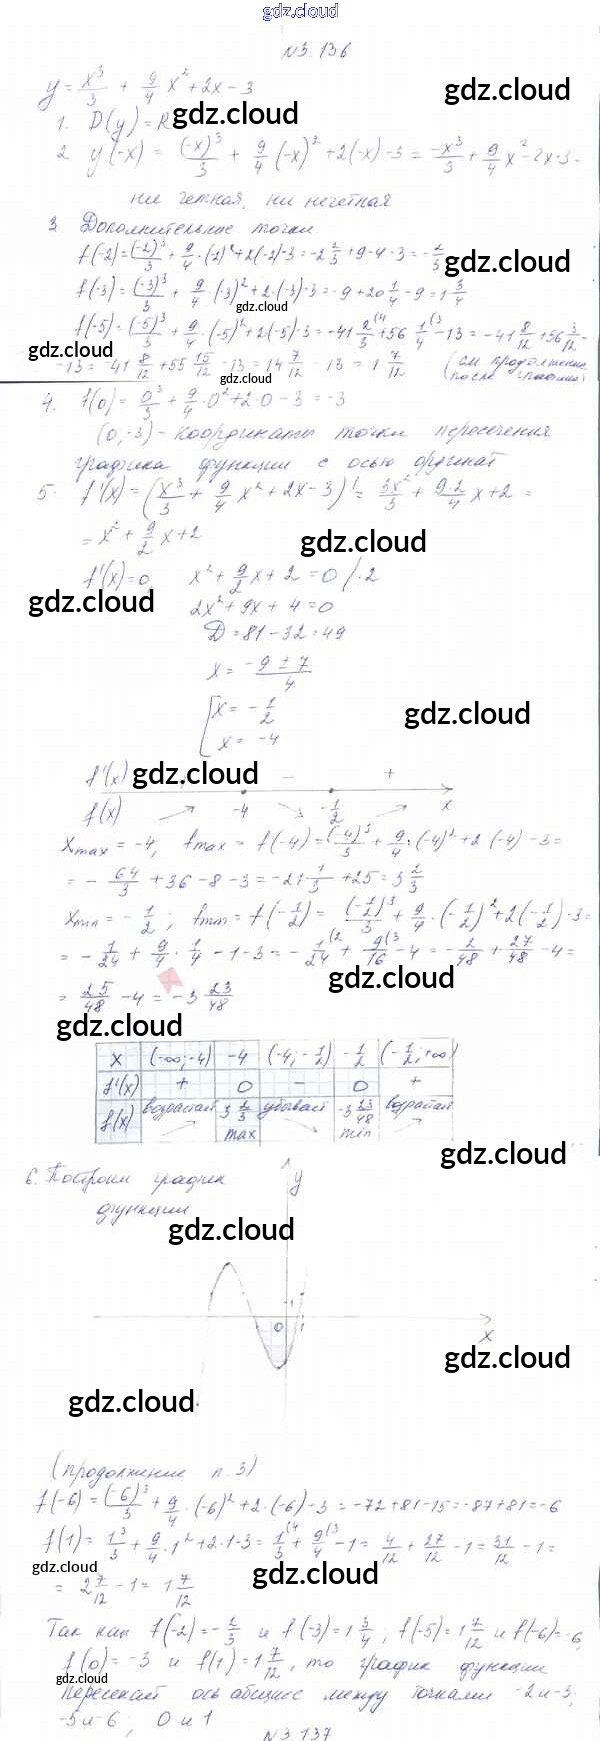 gdz.cloud
N3.136
y = x³/3 + 9/4 x² + 2x - 3
gdz.cloud
1. D(y) = R
gdz.cloud
2 y(-x) = (-x)³/3 + 9/4 (-x)² + 2(-x) - 3 = -x³/3 + 9/4 x² - 2x - 3 -
ни четная, ни нечетная
3 Дополнительные точки
f(-2) = (-2)³/3 + 9/4 · (-2)² + 2(-2) - 3 = -2 2/3 + 9 - 4 - 3 = -2/3
gdz.cloud
f(-3) = (-3)³/3 + 9/4 · (-3)² + 2·(-3) - 3 = -9 + 20 1/4 - 9 = 1 3/4
gdz.cloud
f(-5) = (-5)³/3 + 9/4 · (-5)² + 2(-5) - 3 = -41 2/3 (4 + 56 1/4 (3 - 13 = -41 8/12 + 56 3/12 -
gdz.cloud
- 13 = -41 8/12 + 55 15/12 - 13 = 14 7/12 13 = 1 7/12 (см продолжение
после графика)
gdz.cloud
4. f(0) = 0³/3 + 9/4 · 0² + 2·0 - 3 = -3
(0, -3) - координаты точки пересечения
графика функции с осью ординат
5. f'(x) = (x³/3 + 9/4 x² + 2x - 3)' = 3x²/3 + 9·2/4 x + 2 =
= x² + 9/2 x + 2
gdz.cloud
f'(x) = 0 x² + 9/2 x + 2 = 0 /·2
gdz.cloud
2x² + 9x + 4 = 0
D = 81 - 32 = 49
x = -9 ± 7 / 4
[ x = -1/2
gdz.cloud
x = -4
f'(x) gdz.cloud - +
f(x) -4 -1/2 x
xmax = -4; fmax = f(-4) = (-4)³/3 + 9/4 · (-4)² + 2(-4) - 3 =
= - 64/3 + 36 - 8 - 3 = -21 1/3 + 25 = 3 2/3
xmin = -1/2; fmin = f(-1/2) = (-1/2)³/3 + 9/4 · (-1/2)² + 2(-1/2) - 3 =
= -1/24 + 9/4 · 1/4 - 1 - 3 = -1/24 (2 + 9/16 (3 - 4 = -2/48 + 27/48 - 4 =
gdz.cloud
= 25/48 - 4 = -3 23/48
gdz.cloud
x (-∞; -4) -4 (-4; -1/2) -1/2 (-1/2; +∞)
f'(x) + 0 - 0 +
f(x) возрастает 3 2/3 max убывает -3 23/48 min возрастает
gdz.cloud
6. Построим график y
функции
gdz.cloud
1
0 1 x
gdz.cloud
gdz.cloud
(продолжение п. 3)
f(-6) = (-6)³/3 + 9/4 · (-6)² + 2·(-6) - 3 = -72 + 81 - 15 = -87 + 81 = -6
f(1) = 1³/3 + 9/4 · 1² + 2·1 - 3 = 1/3 (4 + 9/4 (3 - 1 = 4/12 + 27/12 - 1 = 31/12 - 1 =
gdz.cloud
gdz.cloud
= 2 7/12 - 1 = 1 7/12
Так как f(-2) = -2/3 и f(-3) = 1 3/4; f(-5) = 1 7/12 и f(-6) = -6,
f(0) = -3 и f(1) = 1 7/12, то график функции
gdz.cloud
пересекает ось абсцисс между точками -2 и -3;
-5 и -6; 0 и 1
N3.137